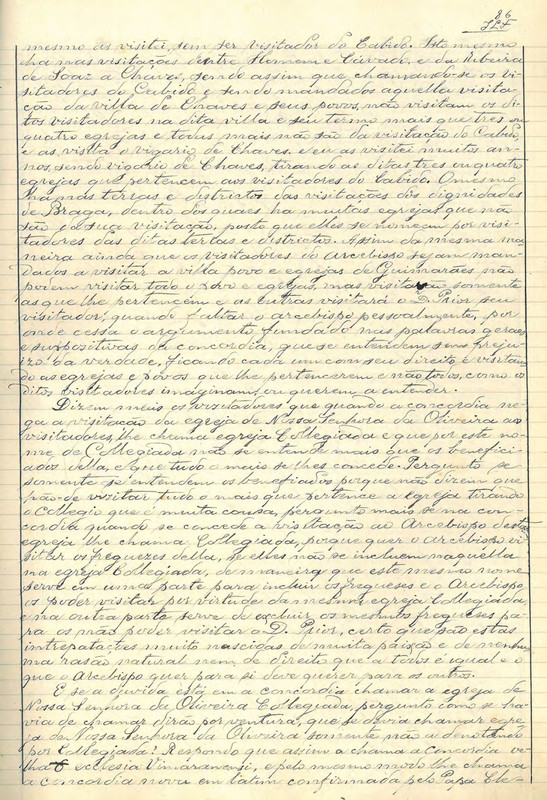 86
mesmo as visitei, sem ser visitador do Cabido. Isto mesmo
ha nas visitações dentre Homem e Cávado, e da Ribeira
de Soaz a Chaves, sendo assim que chamando-se os vi-
sitadores do Cabido e sendo mandados aquella visita-
ção da villa de Chaves e seus povos, não visitam os di-
tos visitadores na dita villa e seu termo mais que tres ou
quatro egrejas e todas mais não são da visitação do Cabido,
e as visita o vigario de Chaves. E eu as visitei muitos an-
nos, sendo vigario de Chaves, tirando as ditas tres ou quatro
egrejas que pertencem aos visitadores do Cabido. O mesmo
ha nas terras e districtos das visitações dos dignidades
de Braga, dentro dos quaes ha muitas egrejas que não
são da sua visitação, posto que elles se nomeam por visi-
tadores das ditas terras e districtos. Assim da mesma ma-
neira ainda que os visitadores do arcebispo sejam man-
dados a visitar a villa povo e egrejas de Guimarães não
podem visitar todo o povo e egrejas, mas visitarão somente
as que lhe pertencem e as outras visitará o D. Prior seu
visitador, quando faltar o arcebispo pessoalmente, por
onde cessa o argumento fundado nas palavras geraes
e suppositivas da concordia, que se entendem sem prejui-
zo da verdade, ficando cada um com seu direito e visitan-
do as egrejas e povos que lhe pertencerem e não todos, como os
ditos visitadores imaginam, ou querem a entender.
Dizem mais os visitadores que quando a concordia ne-
ga a visitação da egreja de Nossa Senhora da Oliveira aos
visitadores, lhe chama egreja Collegiada e que por este no-
me de Collegiada não se entende mais que os benefici-
ados della, e que tudo o mais se lhes concede. Pergunto se
somente se entendem os beneficiados porque não dizem que
hão-de visitar tudo o mais que pertence a egreja tirando
o Collegio que é muita cousa, pergunto mais se na con-
cordia quando se concede a visitação ao Arcebispo desta
egreja lhe chama Collegiada, porque quer o arcebispo vi-
sitar os freguezes della, se elles não se incluem naquella
na egreja Collegiada, de maneira que este mesmo nome
serve em uma parte para incluir os freguezes e o Arcebispo
os poder visitar por virtude da mesma egreja Collegiada,
e na outra parte serve de excluir os mesmos freguezes pa-
ra os não poder visitar o D. Prior, certo que são estas
intrepatações muito nascidas de muita paixão e de nenhu-
ma rasão natural nem de direito que a todos é igual e o
que o Arcebispo quer para si deve querer para os outros.
E se a duvida está em a concordia chamar a egreja de
Nossa Senhora da Oliveira Collegiada, pergunto como se ha-
via de chamar dirão por ventura, que se devia chamar egre-
ja de Nossa Senhora da Oliveira somente não a denotando
por Collegiada? Respondo que assim a chama a concordia ve-
lha ecclesia Vimaranensi, e pelo mesmo modo lhe chama
a concordia nova em latim confirmada pelo Papa Cle-